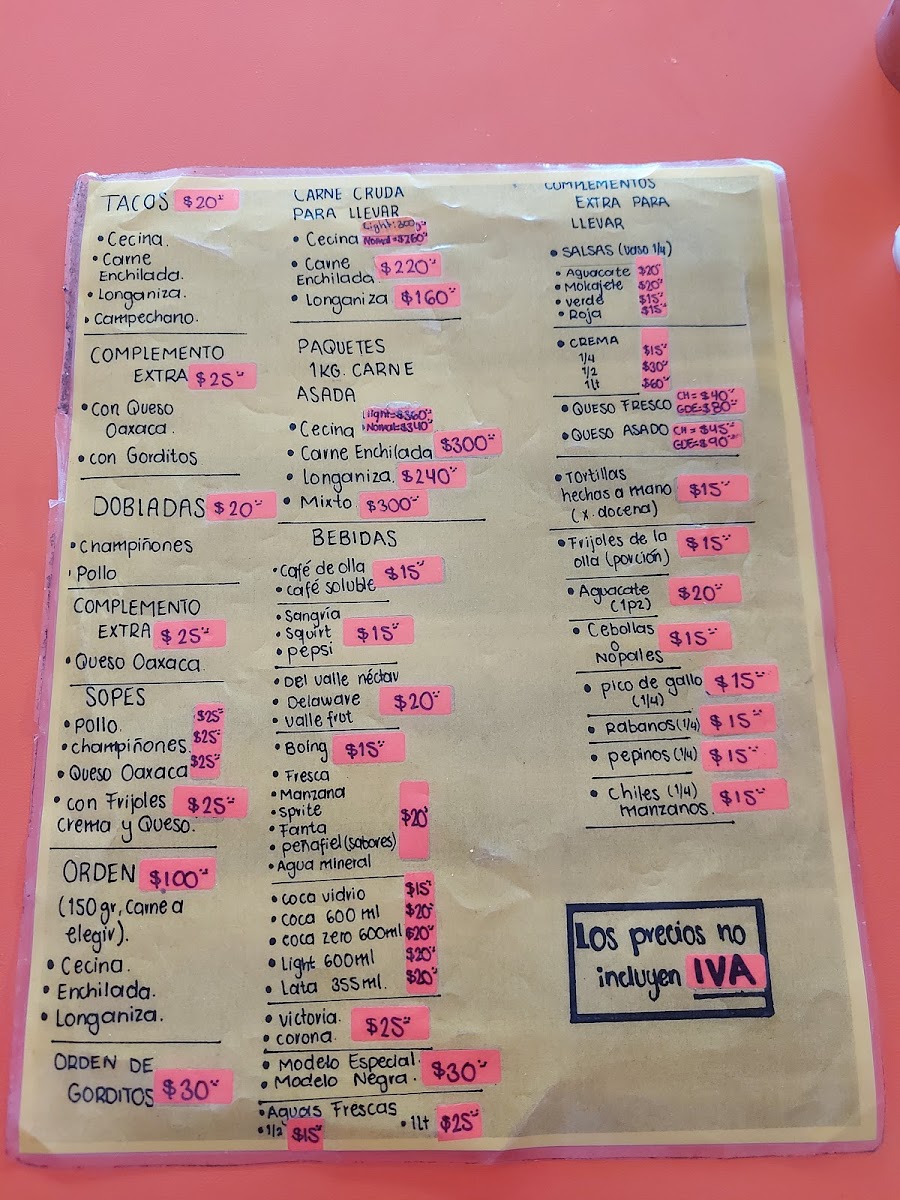 TACOS $20
• Cecina.
• Carne
Enchilada.
• Longaniza.
• Campechano.
COMPLEMENTO
EXTRA $25
• con Queso
Oaxaca.
• con Gorditos
DOBLADAS $20
• Champiñones
• Pollo
COMPLEMENTO
EXTRA $25
• Queso Oaxaca.
SOPES
• Pollo. $25
• champiñones. $25
• Queso Oaxaca $25
• con Frijoles $25
crema y Queso.
ORDEN $100
(150gr, carne a
elegir).
• Cecina.
• Enchilada.
• Longaniza.
ORDEN DE
GORDITOS $30
CARNE CRUDA
PARA LLEVAR
• Cecina Normal=$260
• Carne $220
Enchilada
• Longaniza $160
PAQUETES
1KG. CARNE
ASADA
light=$360
• Cecina Normal=$340
• Carne Enchilada $300
• Longaniza. $240
• Mixto $300
BEBIDAS
• Café de olla $15
• café soluble
• Sangría
• Squirt $15
• pepsi
• Del valle néctar
• Delaware $20
• valle frut
• Boing $15
• Fresca
• Manzana
• sprite $20
• Fanta
• peñafiel (sabores)
• Agua mineral
• coca vidrio $15
• coca 600 ml $20
• coca zero 600ml $20
• Light 600ml $20
• Lata 355ml. $20
• victoria. $25
• corona.
• Modelo Especial. $30
• Modelo Negra.
• Aguas Frescas
• 1/2 $15 • 1Lt $25
COMPLEMENTOS
EXTRA PARA
LLEVAR
• SALSAS (vaso 1/4)
• Aguacate $20
• Molcajete $20
• verde $15
• Roja $15
• CREMA
1/4 $15
1/2 $30
1lt $60
• QUESO FRESCO CH=$40
GDE=$80
• QUESO ASADO CH=$45
GDE=$90
• Tortillas
hechas a mano $15
(x. docena)
• Frijoles de la $15
olla (porción)
• Aguacate $20
(1pz)
• Cebollas $15
o
Nopales
• pico de gallo $15
(1/4)
• Rabanos (1/4) $15
• pepinos (1/4) $15
• Chiles (1/4) $15
manzanos.
Los precios no
incluyen IVA